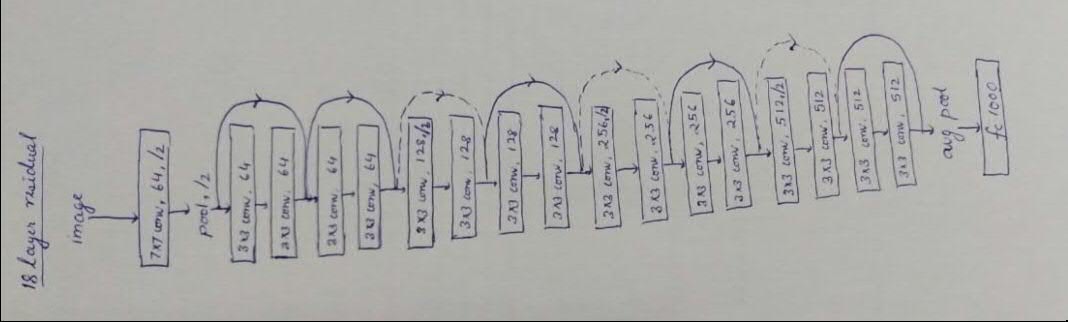 18 layer residual
image
7x7 conv, 64, /2
pool, /2
3x3 conv, 64
3x3 conv, 64
3x3 conv, 64
3x3 conv, 64
3x3 conv, 128, /2
3x3 conv, 128
3x3 conv, 128
3x3 conv, 128
3x3 conv, 256, /2
3x3 conv, 256
3x3 conv, 256
3x3 conv, 256
3x3 conv, 512, /2
3x3 conv, 512
3x3 conv, 512
3x3 conv, 512
avg pool
fc 1000